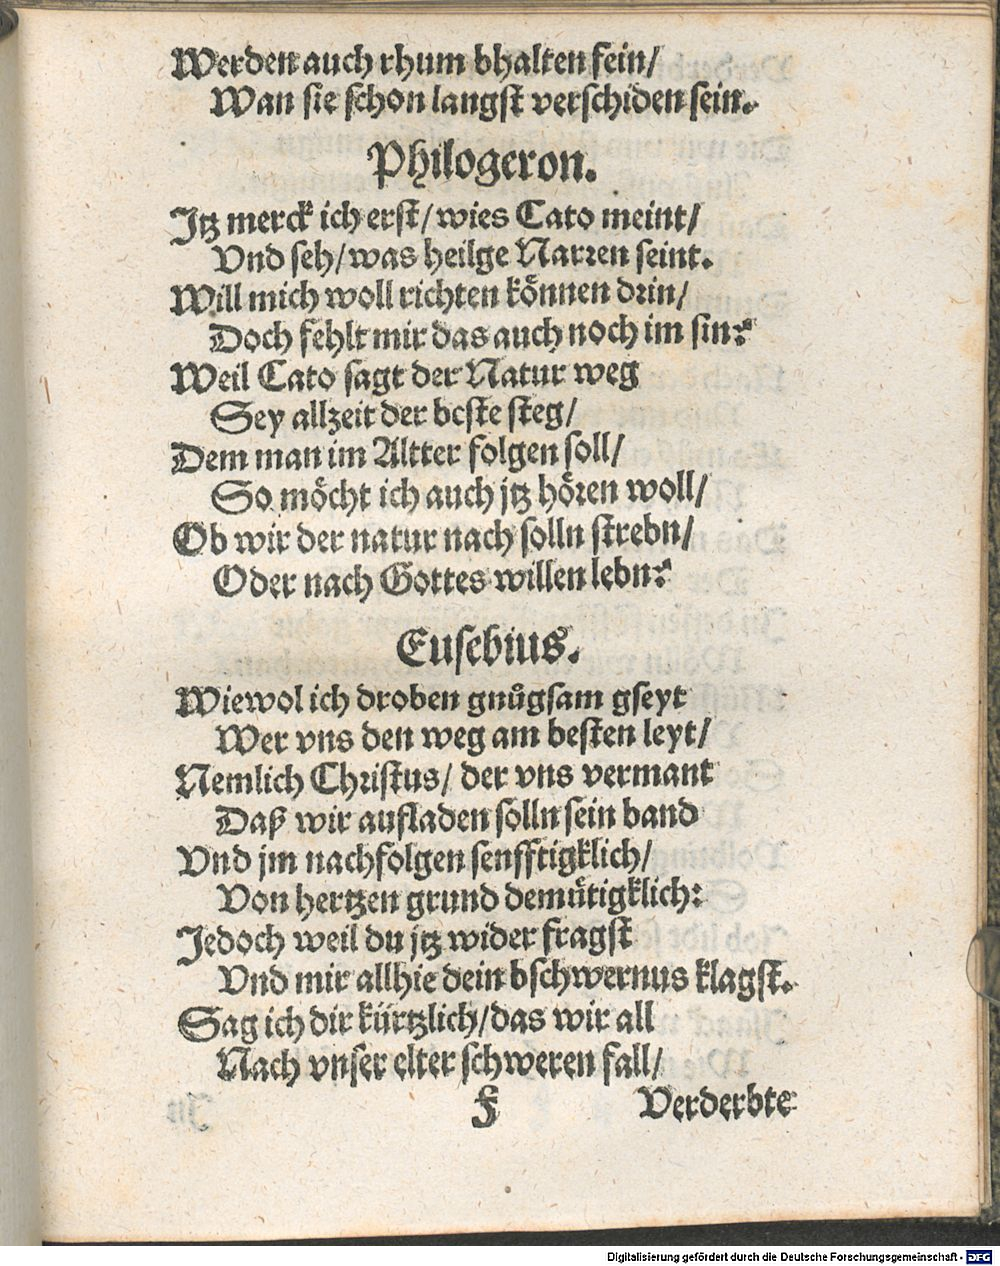 Werden auch rhum bhalten fein/
Wan sie schon langst verschiden sein.
Philogeron.
Itz merck ich erst/ wies Cato meint/
Vnd seh/ was heilge Narren seint.
Will mich woll richten können drin/
Doch fehlt mir das auch noch im sin:
Weil Cato sagt der Natur weg
Sey allzeit der beste steg/
Dem man im Altter folgen soll/
So möcht ich auch jtz hören woll/
Ob wir der natur nach solln strebn/
Oder nach Gottes willen lebn?
Eusebius.
Wiewol ich droben gnůgsam gseyt
Wer vns den weg am besten leyt/
Nemlich Christus/ der vns vermant
Daß wir aufladen solln sein band
Vnd jm nachfolgen senfftigklich/
Von hertzen grund demütigklich:
Jedoch weil du jtz wider fragst
Vnd mir allhie dein bschwernus klagst.
Sag ich dir kürtzlich/ das wir all
Nach vnser elter schweren fall/
f Verderbte
Digitalisierung gefördert durch die Deutsche Forschungsgemeinschaft - DFG